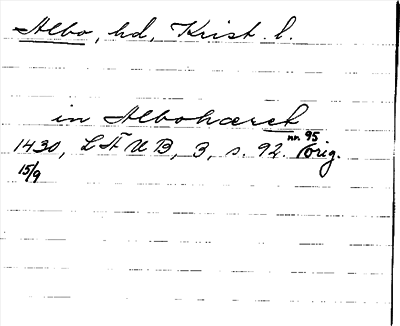 Albo, hd, Krist. l.
in Albohæreth
nr. 95
1430, LÄUB, 3, s. 92. orig.
15/9